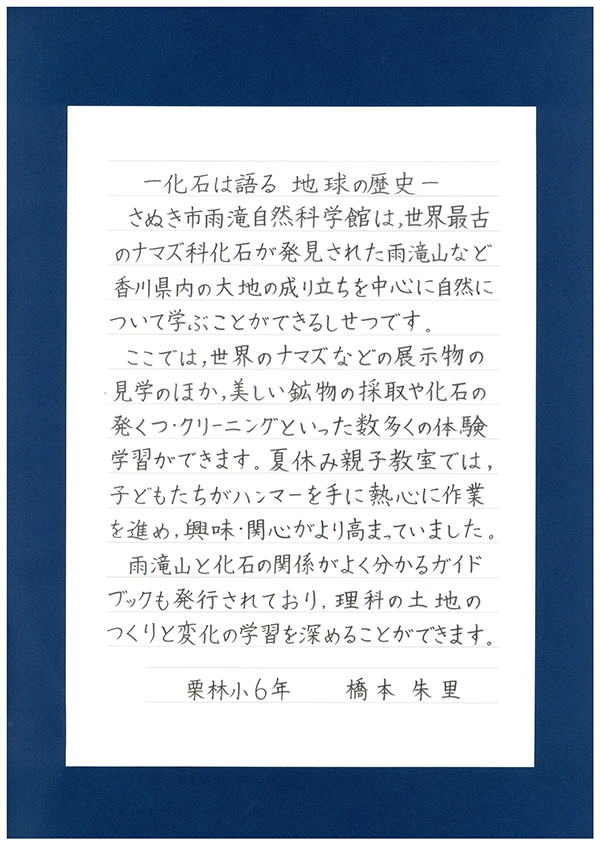 ー化石は語る 地球の歴史ー
さぬき市雨滝自然科学館は,世界最古
のナマズ科化石が発見された雨滝山など
香川県内の大地の成り立ちを中心に自然に
ついて学ぶことができるしせつです。
ここでは,世界のナマズなどの展示物の
見学のほか,美しい鉱物の採取や化石の
発くつ・クリーニングといった数多くの体験
学習ができます。夏休み親子教室では,
子どもたちがハンマーを手に熱心に作業
を進め,興味・関心がより高まっていました。
雨滝山と化石の関係がよく分かるガイド
ブックも発行されており,理科の土地の
つくりと変化の学習を深めることができます。
栗林小6年 橋本朱里